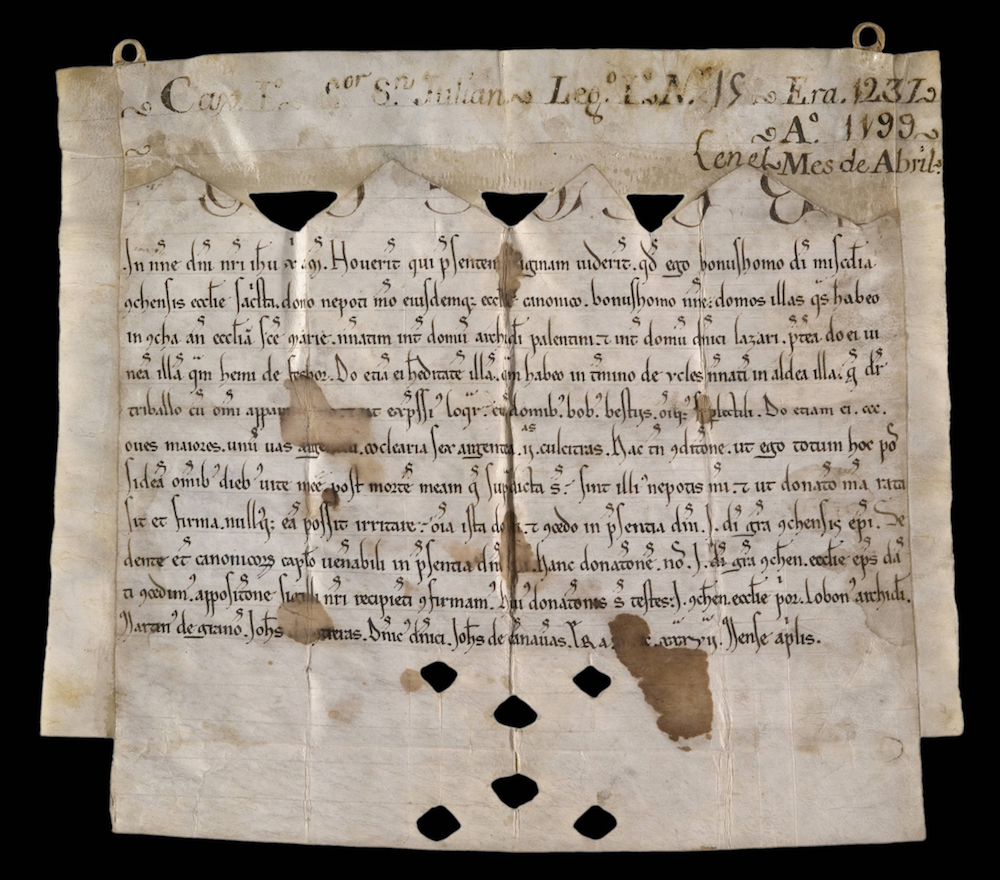 Cap. I.º Sor Sn Julian Leg.º I.º N.º 15 Era. 1237
A.º 1199
en el Mes de Abril.
In nne dni nri ihu xpi. Noverit qui psentem paginam viderit. qd ego bonushomo di miscdia
9chensis ecclie sacsta. dono nepoti mo eiusdemq; ecclie canonico. bonushomo nne: domos illas qs habeo
in 9cha an ecclia sce marie. nnatim int domu archidi palentini. 7 int domu dnici lazari. ptea do ei vi
nea illa qm hemi de Do etia ei heditate illa. qm habeo in tmino de vcles nnati in aldea illa. q dr
triballo cu omi expssi loqr. cu domib. bob. bestiis. oiq; suplectili. Do etiam ei. ccc.
oves maiores. unu vas coclearia sex argentea. ii. culcitras. Hac tn 9ditone. ut ego totum hoc po
sidea omib dieb vite mee post morte meam q supdicta s. sint illi nepotis mi. 7 ut donato ma rata
sit et firma. nullq; ea possit irritare. oia ista dono. 7 9cedo in psentia dni. J. di gra 9chensis epi. Se
dente et canonicorz caplo venabili in psentia dni Hanc donatone. no. J. di gra 9chen. ecclie eps da
ti 9cedim. appositone sigilli nri recipieti 9firmam. Hui donatonis s testes: J. 9chen. ecclie por. Lobon archidi.
Martin de grano. Johs Dnic dnici. Johs de canavas. Era xxxvii. Mense aplis.